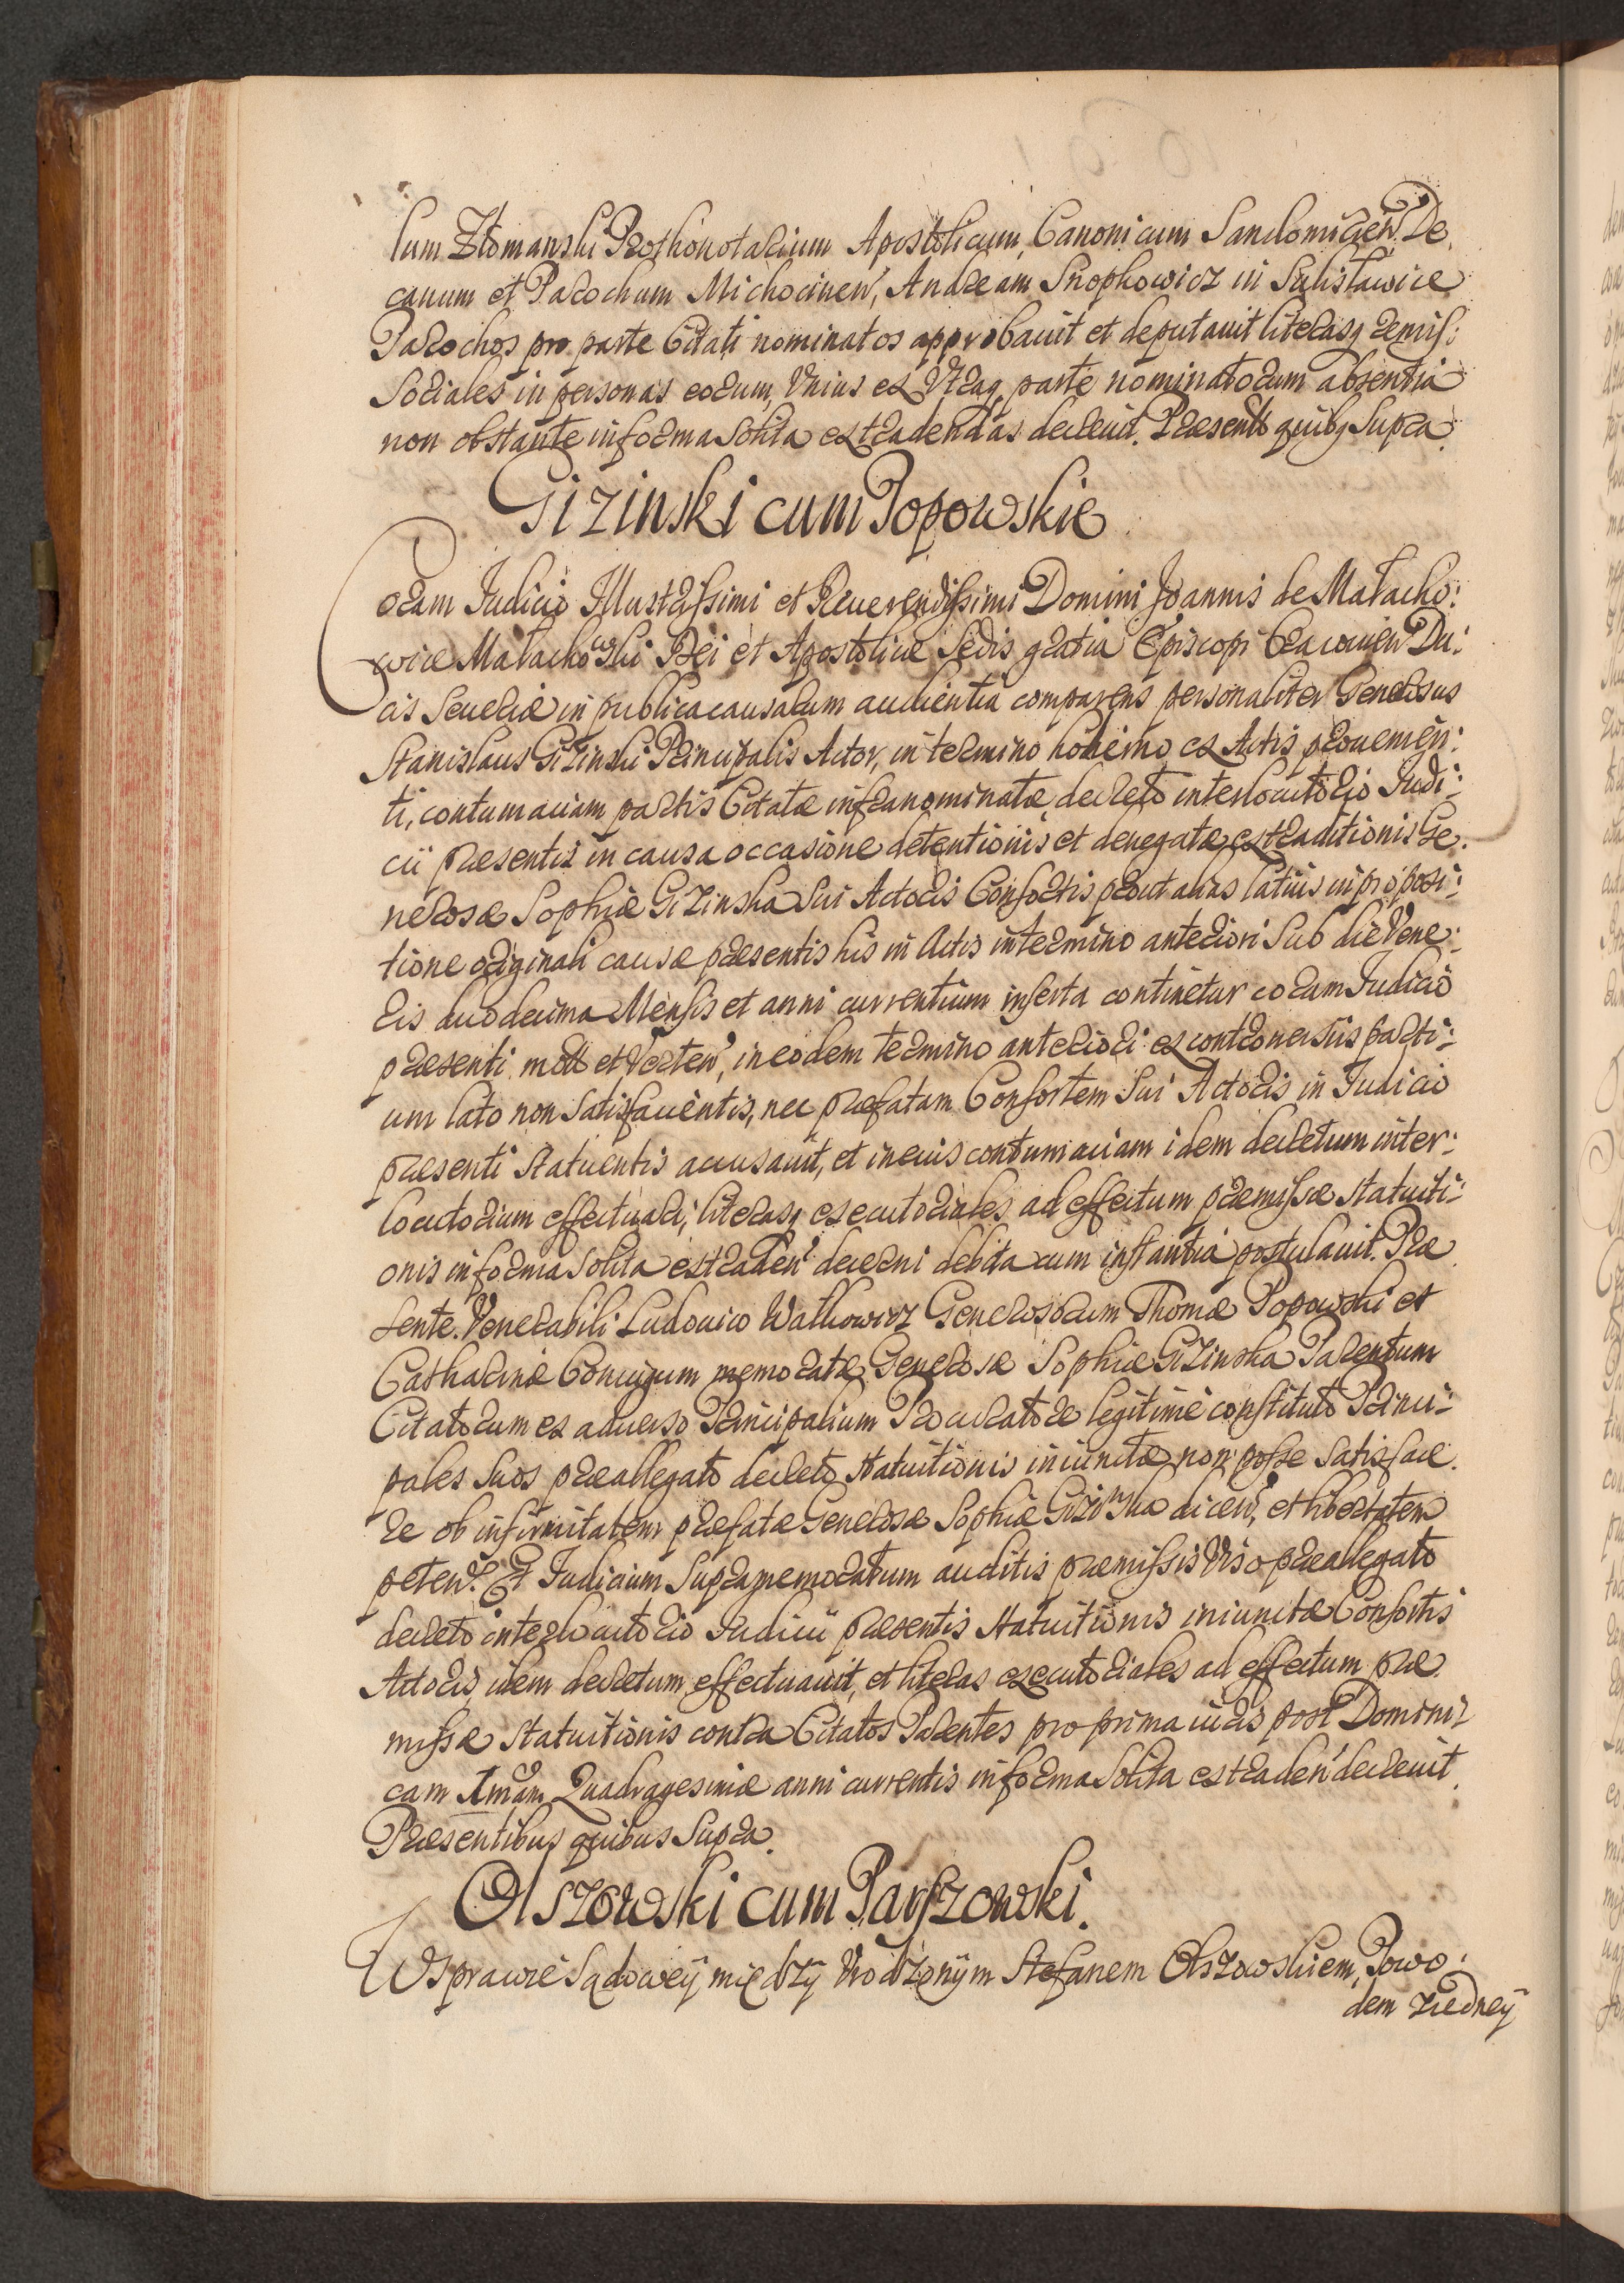 lum Ztomanski Prothonotarium Apostolicum, Canonicum Sandomirien̄. De
canum et Parochum Michocinen̄, Andream Snophowicz in Sulistawice
Parochos pro parte Citati nominatos approbauit et deputauit literasq remis:
soriales in personas eorum, Vnius ex Vtraq parte nominatorum absentia
non obstante in forma solita extradendas decreuit. Præsentib quibq supra.
Gizinski cum Popowskie
Coram Iudicio Illustrissimi et Reuerendissimi Domini Joannis de Małacho:
wice Małachowski Dei et Apostolicæ Sedis gratia Episcopi Cracouien̄ Du:
cis Seueriæ in publica causarum audientia comparens personaliter Generosus
Stanislaus Gizinski Principalis Actor, in termino hodierno ex Actis proueniēn:
ti, contumaciam partis Citatæ infranominatæ decreto interlocutorio Iudi:
cii præsentis in causa occasione detentionis et denegatæ extraditionis Ge.
nerosæ Sophiæ Gizinska sui Actoris Consortis prout alias latius in proposi:
tione originali causæ præsentis his in Actis in termino anteriori sub die Vene:
ris duodecima Mensis et anni currentium inserta continetur coram Iudicio
præsenti mot et Verten̄, in eodem termino anteriori ex controuersiis parti:
um lato non satisfacientis, nec præfatam Consortem sui Actoris in Iudicio
præsenti statuentis accusauit, et in eius contumaciam idem decretum inter:
locutorium effectuari, literasq executoriales ad effectum præmissæ statuiti:
onis in forma solita extraden̄ decerni debita cum instantia postulauit. Præ
sente Venerabili Ludouico Walkowicz Generosorum Thomæ Popowski et
Catharinæ Coniugum memoratæ Generosæ Sophiæ Gizinska Parentum
Citatorum ex aduerso Principalium Procuratore legitime constituto Princi:
pales suos præallegato decreto statuitionis iniunctæ non posse satisface.
re ob infirmitatem præfatæ Generosæ Sophiæ Gizinska dicen̄, et libertatem
peten̄. Et Iudicium supramemoratum auditis præmissis Viso præallegato
decreto interlocutorio Iudicii præsentis statuitionis iniunctæ Consortis
Actoris, idem decretum effectuauit, et literas executoriales ad effectum præ
missæ statuitionis contra Citatos Parentes pro prima iuris post Domini:
cam 1mam Quadragesimæ anni currentis in forma solita extraden̄ decreuit
Præsentibus quibus supra.
Olszowski cum Parszowski.
W sprawie sądowey między Vrodzonym Stefanem Olszowskiem, Powo:
dem zjedney